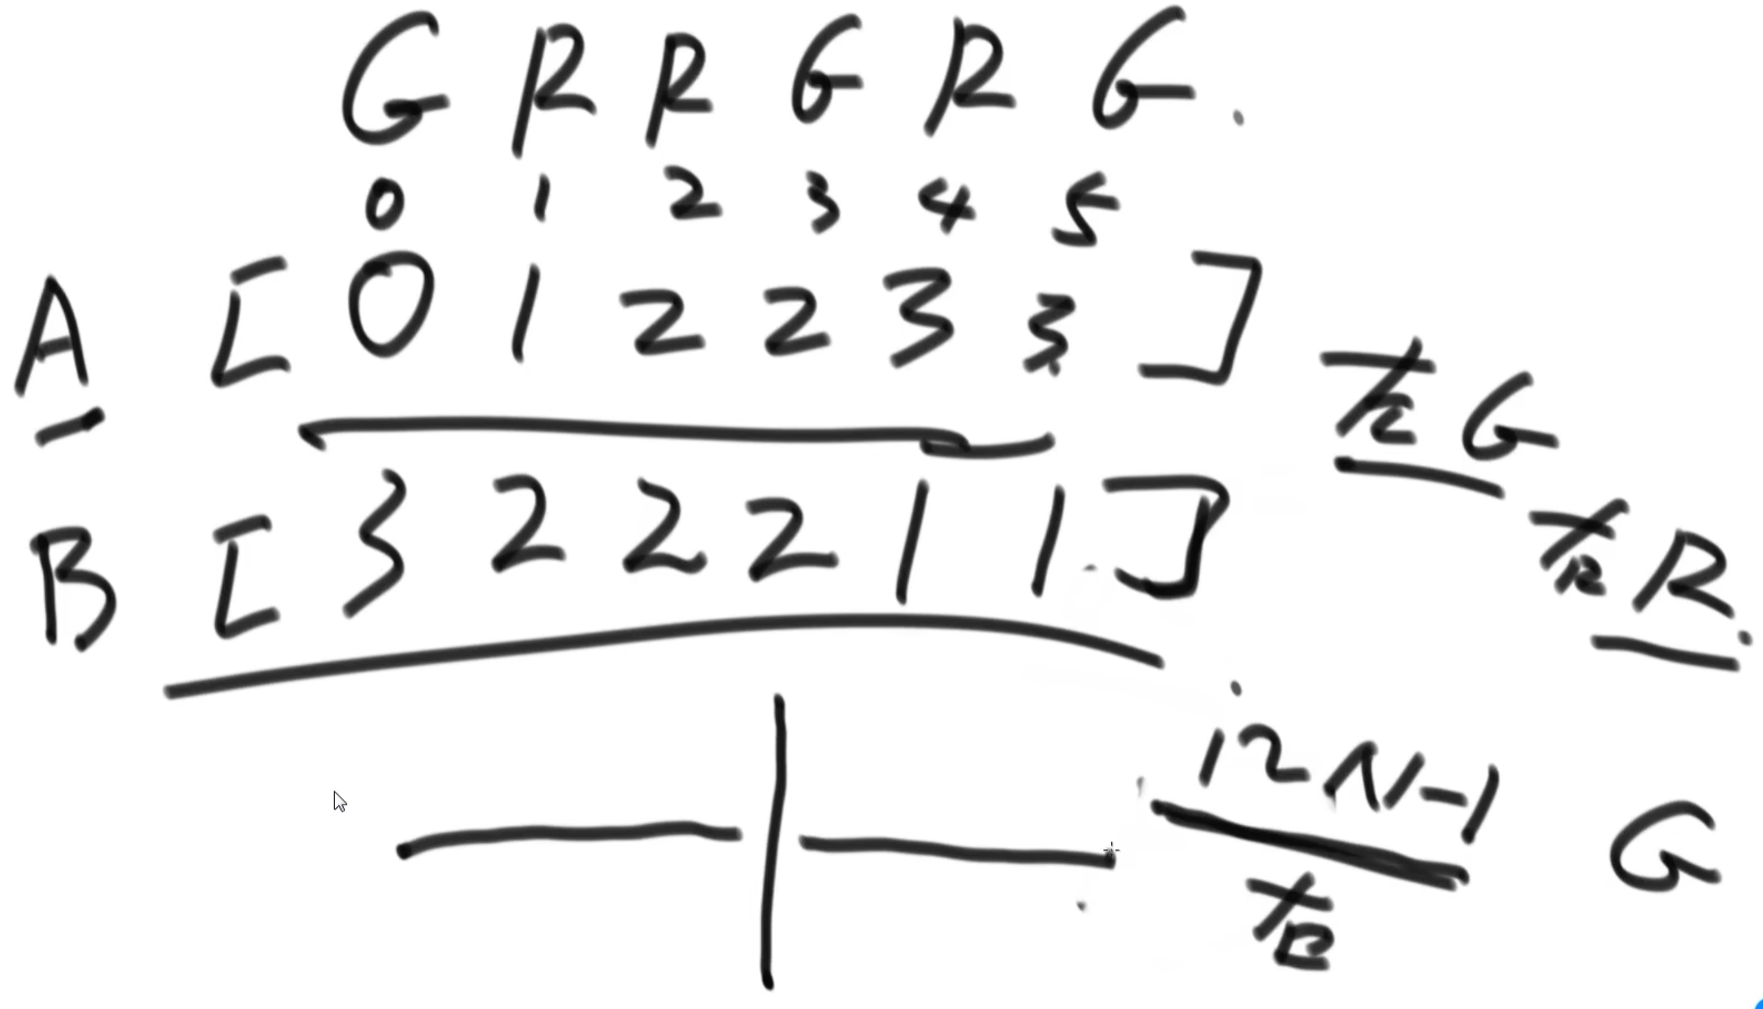 G R R G R G
0 1 2 3 4 5
A [ 0 1 2 2 3 3 ]
G
B [ 3 2 2 2 1 1 ]
R
N-1 G